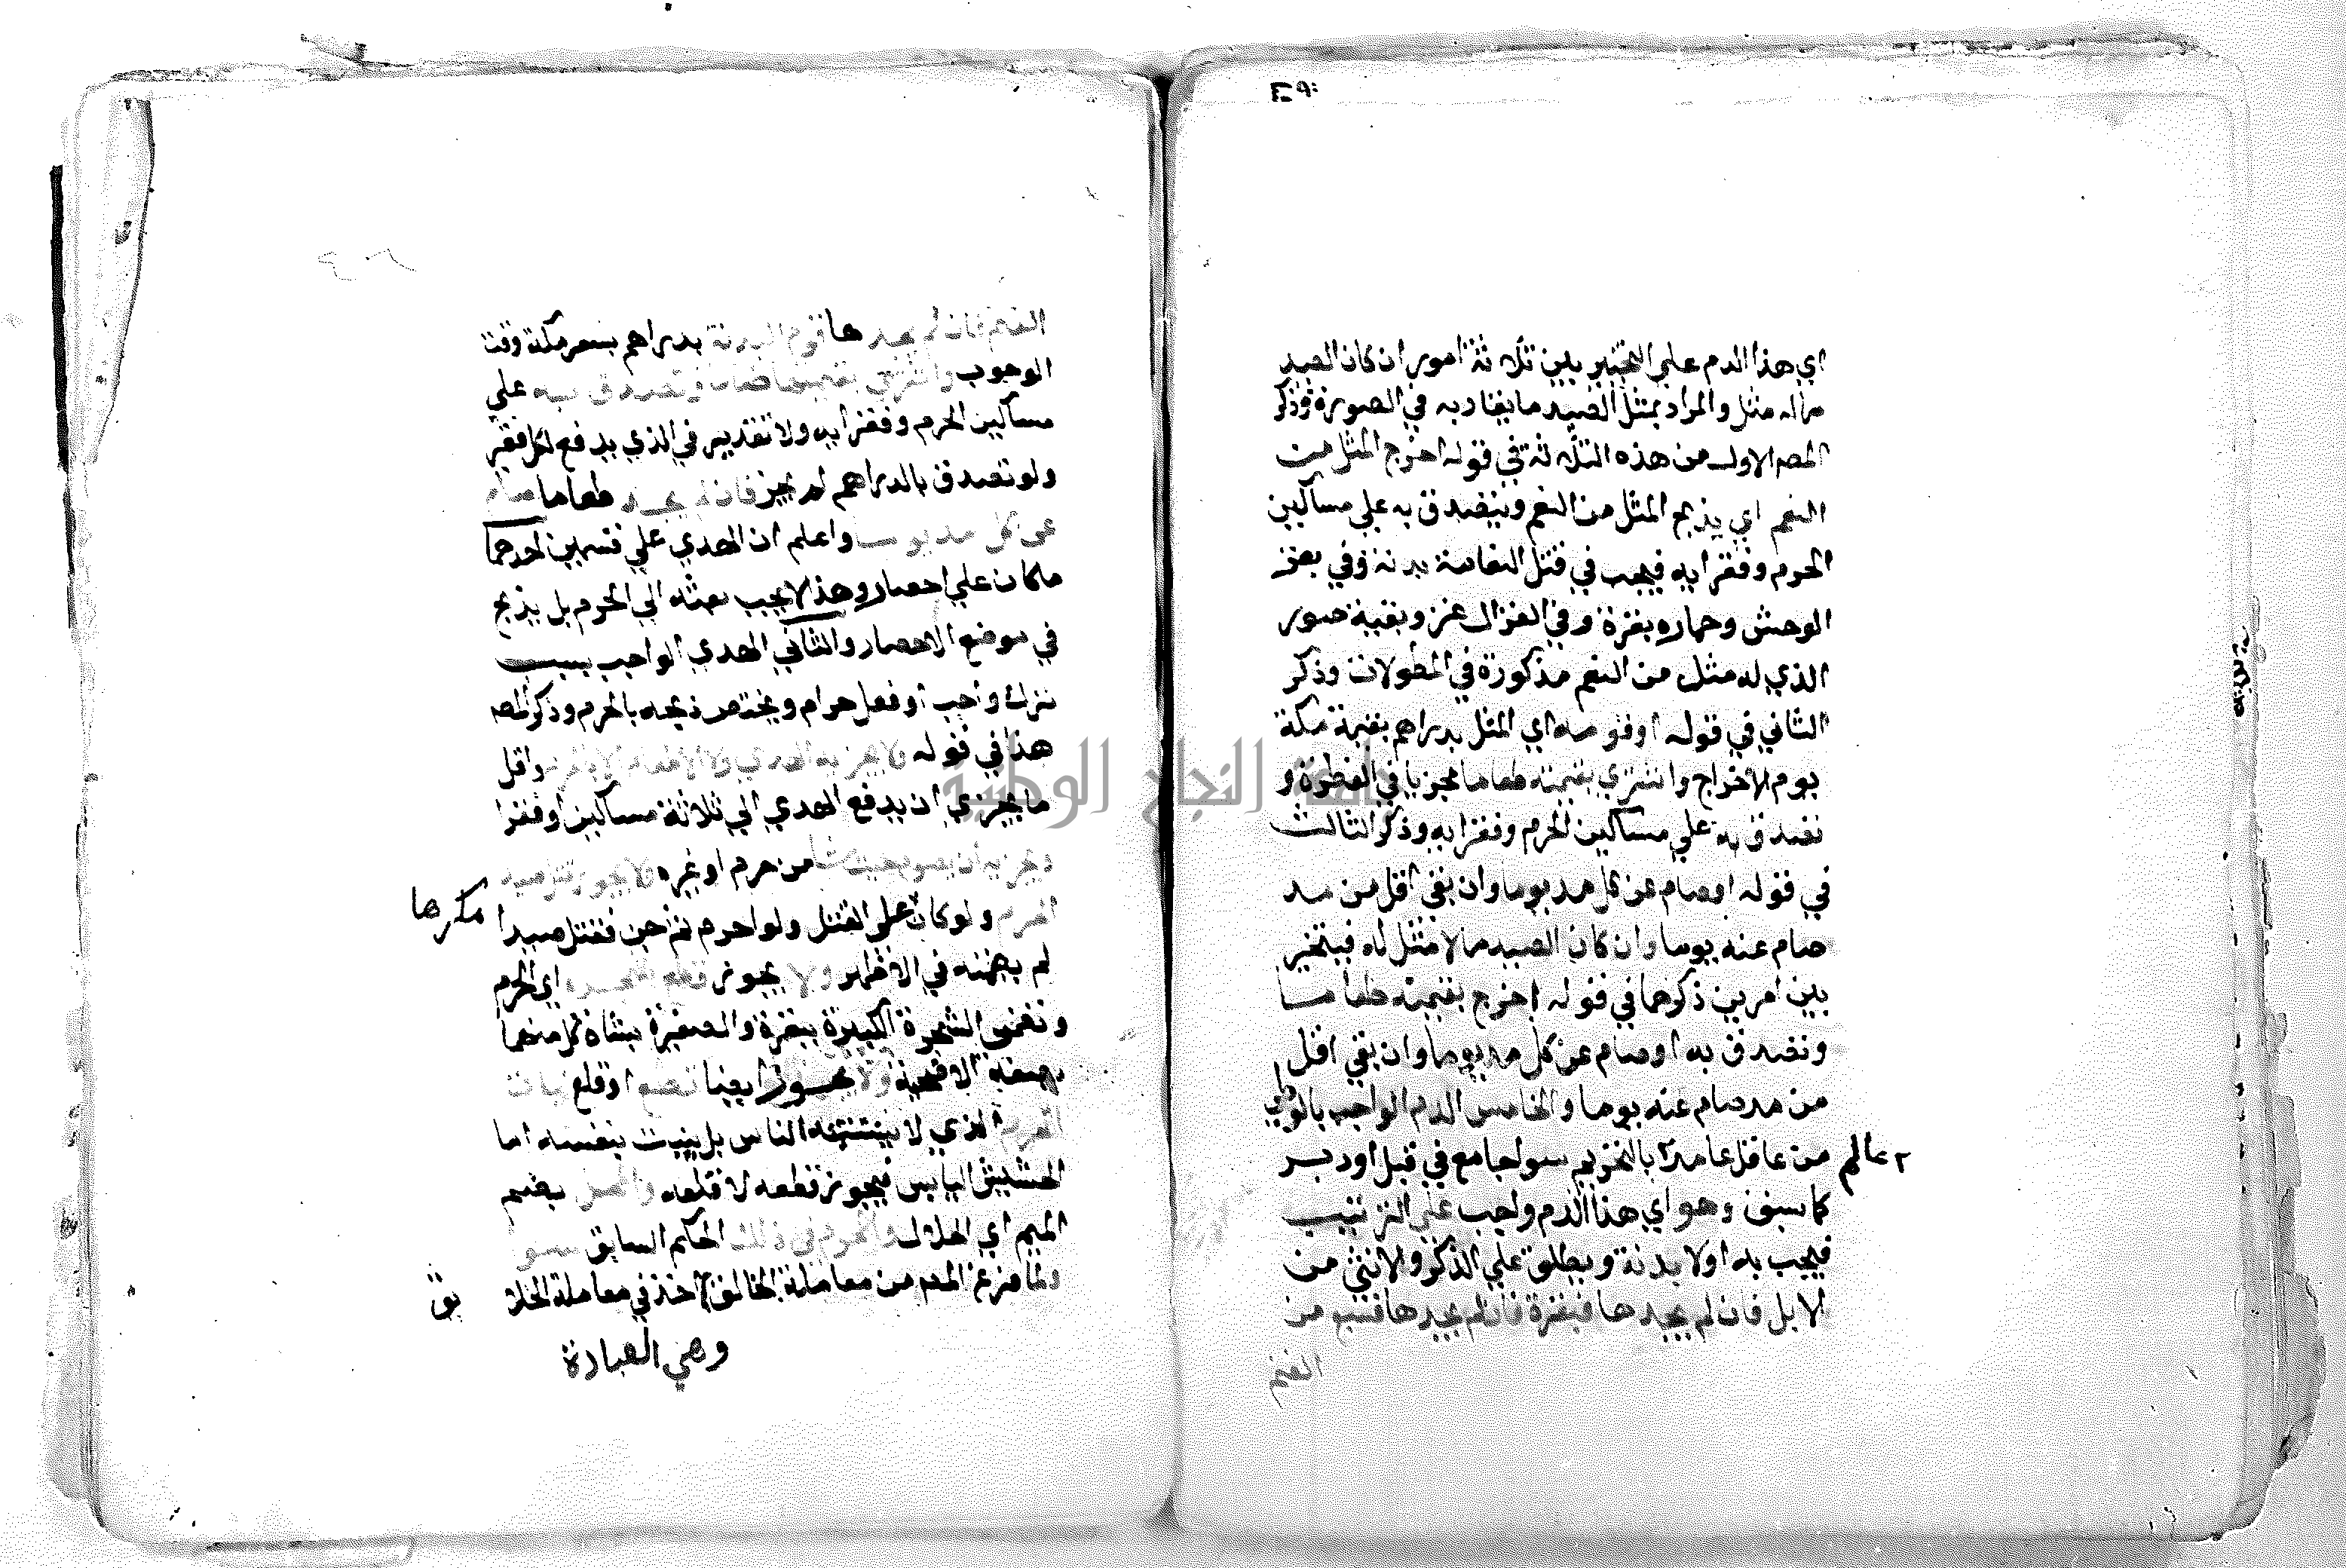 اي هذا الدم علي التخيير بين ثلاثة امور ان كان الصيد
مما له مثل والمراد بمثل الصيد ما يقاربه في الصورة وذكر
المص الاول من هذه الثلاثة في قوله اخرج المثل من
النعم اي يذبح المثل من النعم ويتصدق به علي مساكين
الحرم وفقرايه فيجب في قتل النعامة بدنة وفي بقر
الوحش وحماره بقرة وفي الغزال عنز وبقية صور
الذي له مثل من النعم مذكورة في المطولات وذكر
الثاني في قوله او قومه اي المثل بدراهم بقيمة مكة
يوم الاخراج واشتري بقيمته طعاما مجزيا في الفطرة و
تصدق به علي مساكين الحرم وفقرايه وذكر الثالث
في قوله او صام عن كل مد يوما وان بقي اقل من مد
صام عنه يوما وان كان الصيد مما لا مثل له فيتخير
بين امرين ذكرهما في قوله اخرج بقيمته طعاما
وتصدق به او صام عن كل مد يوما وان بقي اقل
من مد صام عنه يوما والخامس الدم الواجب بالوطي
من عاقل عامدا بالتحريم سوا جامع في قبل او دبر
عالم
كما سبق وهو اي هذا الدم واجب علي الترتيب
فيجب به اولا بدنة ويطلق علي الذكر والانثي من
الابل فان لم يجدها فبقرة فان لم يجدها فسبع من
الغنم
الغنم فان لم يجدها قوم البدنة بدراهم بسعر مكة وقت
الوجوب واشتري بقيمتها طعاما وتصدق به علي
مساكين الحرم وفقرايه ولا تقدير في الذي يدفع لكل فقير
ولو تصدق بالدراهم لم يجز فان لم يجد طعاما صام
عن كل مد يوما واعلم ان الهدي علي قسمين احدهما
ما كان علي احصار وهذا لا يجب بعثه الي الحرم بل يذبح
في موضع الاحصار والثاني الهدي الواجب بسبب
ترك واجب او فعل حرام ويختص ذبحه بالحرم وذكر المص
هذا في قوله ولا يجزيه الهدي ولا الاطعام الا بالحرم واقل
ما يجزي ان يدفع الهدي الي ثلاثة مساكين او فقرا
ويجزيه ان يصوم حيث شا من حرم او غيره ولا يجوز قتل صيد
الحرم ولو كان علي القتل ولو احرم ثم جن فقتل صيدا
مكرها
لم يضمنه في الاظهر ولا يجوز قطع شجره اي الحرم
وتضمن الشجرة الكبيرة ببقرة والصغيرة بشاة كل منهما
بصفة الاضحية ولا يجوز ايضا قطع او قلع نبات
الحرم الذي لا يستنبته الناس بل ينبت بنفسه اما
الحشيش اليابس فيجوز قطعه لا قلعه والمحل بضم
الميم اي الحلال والمحرم في ذلك الحكم السابق سوا
ولما فرغ المص من معاملة الخالق اخذ في معاملة الخلا
يق
وهي العبادة